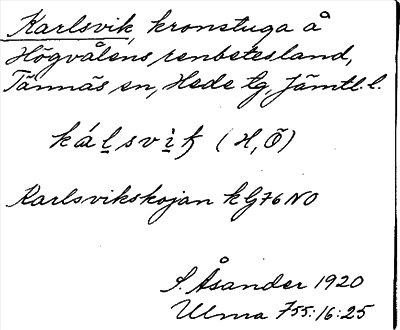 Karlsvik, kronstuga å
Högvålens renbetesland,
Tännäs sn, Hede tg, Jämtl. l.
kálsvìk (H, Ö)
Karlsvikskojan k G76 NO
S. Åsander 1920
Ulma 755:16:25